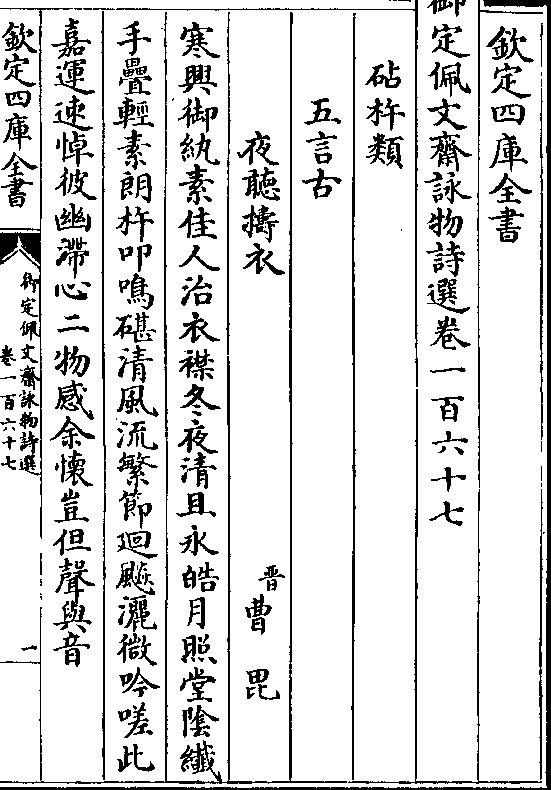 欽定四庫全書
御定佩文齋詠物詩選卷一百六十七
砧杵類
五言古
夜聽擣衣
晋曹毘
寒興御紈素佳人治衣襟冬夜清且永皓月照堂陰纖
手疊輕素朗杵叩鳴碪清風流繁節廻飈灑微吟嗟此
嘉運速悼彼幽滯心二物感余懷豈但聲與音
欽定四庫全書
御定佩文齋詠物詩選
卷一百六十七
一